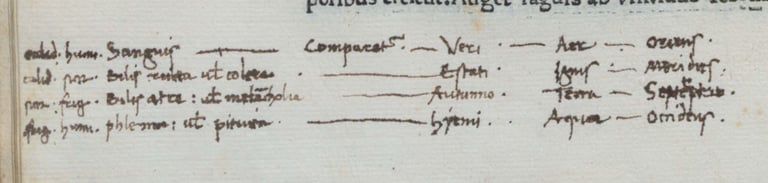 poribus crescit. Auget
calid. hum. Sanguis — Comparatr — Veri — Aer — oriens.
calid. sicc. Bilis rubea vel colera — Estati . Ignis — Meridies.
sicc. frig. Bilis atra: vel melācholia — Autunno . Terra — Septētrio.
frig. humi. phlegma: vel pituita — hyemi . Aqua — Occidens.